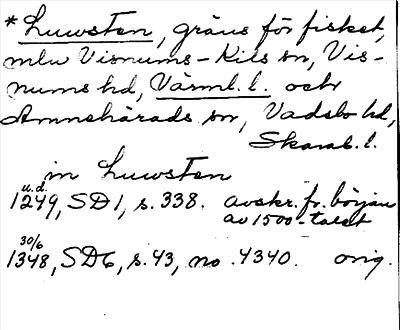 * Luwsten, gräns för fisket,
mlw Visnums-Kils sn, Vis-
nums hd, Värml. l. och
Amnehärads sn, Vadsbo hd,
Skarab. l.
in Luwsten
u.d.
1249, SD1, s. 338. avskr. fr. början
av 1500-talet
30/6
1348, SD6, s. 43, no. 4340. orig.